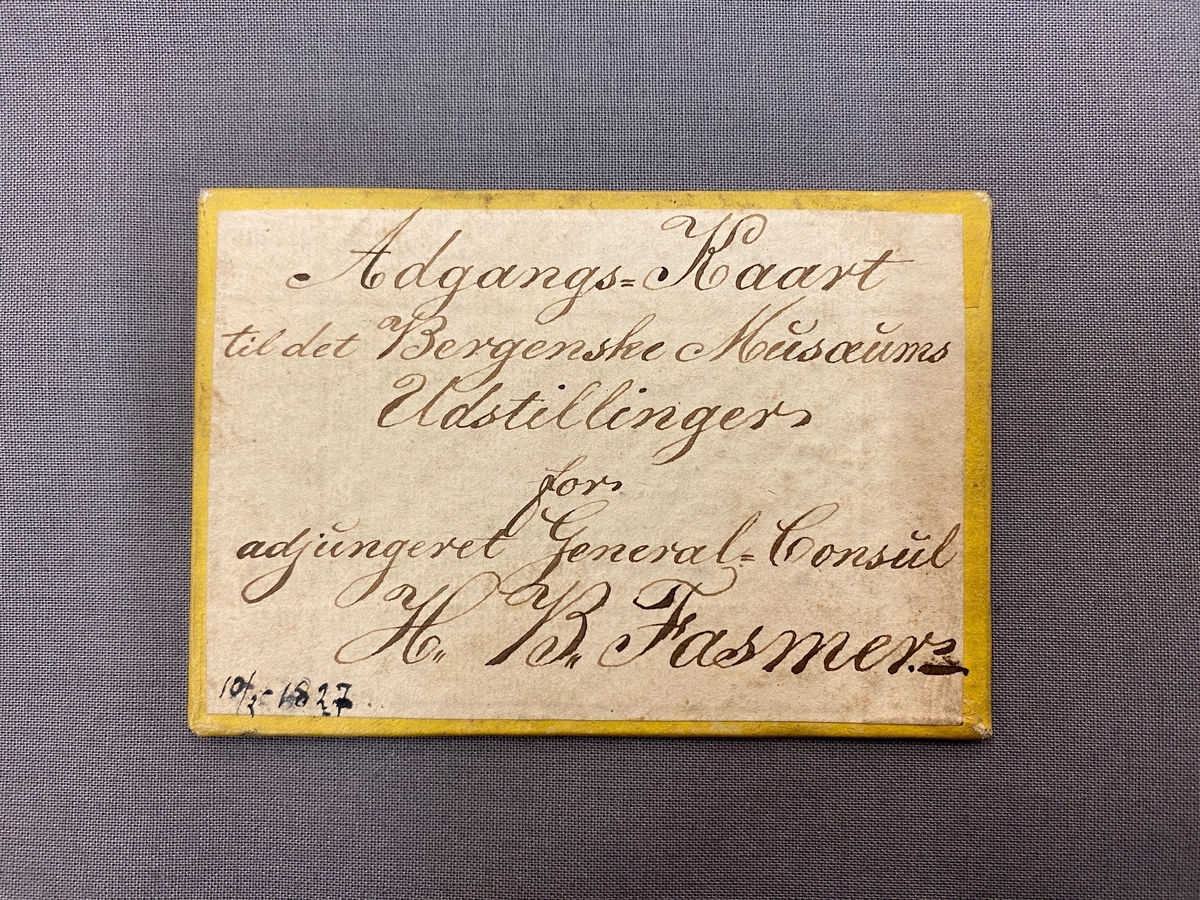 Adgangs=Kaart
til det Bergenske Musæums
Udstillinger
for
adjungeret General=Consul
H. B. Fasmer.
10/5 1827